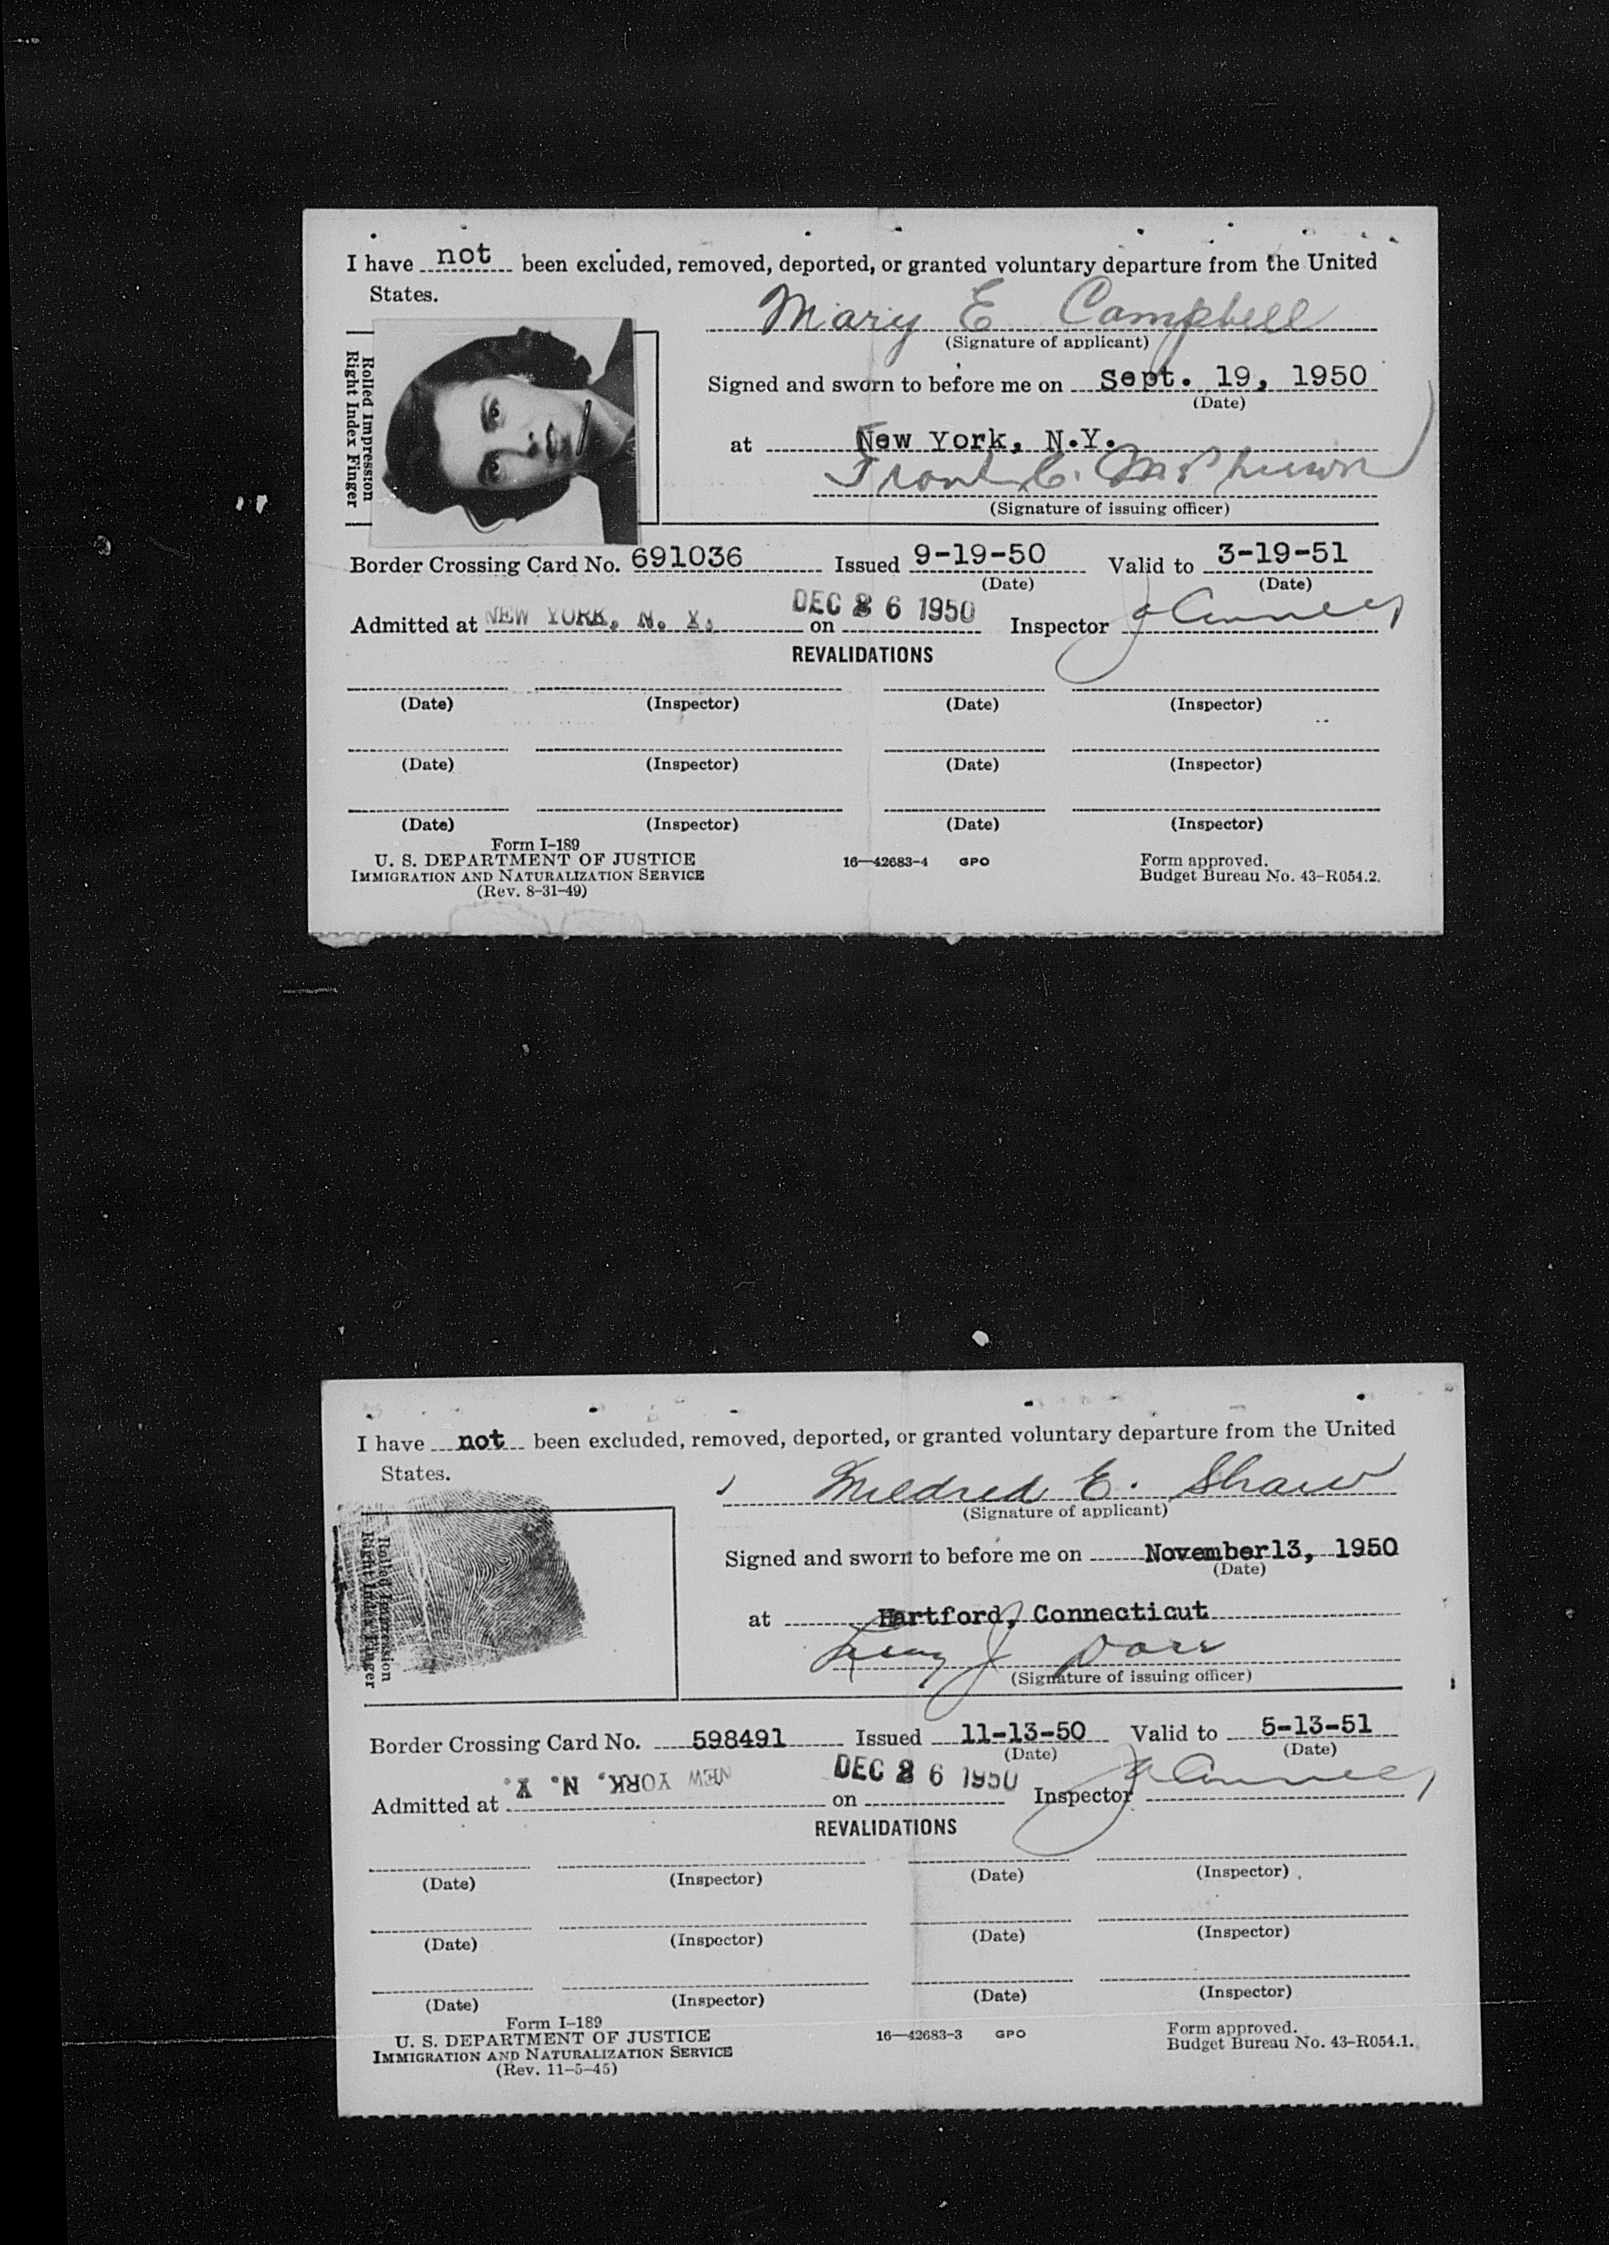 I have not been excluded, removed, deported, or granted voluntary departure from the United
States.
Mary E Campbell
(Signature of applicant)
Rolled Impression
Right Index Finger
Signed and sworn to before me on Sept. 19, 1950
(Date)
at New York, N.Y.
Frank C.
(Signature of issuing officer)
Border Crossing Card No. 691036 Issued 9-19-50 Valid to 3-19-51
(Date) (Date)
Admitted at NEW YORK, N. Y. on DEC 26 1950 Inspector
REVALIDATIONS
(Date) (Inspector) (Date) (Inspector)
(Date) (Inspector) (Date) (Inspector)
(Date) (Inspector) (Date) (Inspector)
Form I-189
U. S. DEPARTMENT OF JUSTICE 16—42683-4 GPO Form approved.
IMMIGRATION AND NATURALIZATION SERVICE Budget Bureau No. 43-R054.2.
(Rev. 8-31-49)
I have not been excluded, removed, deported, or granted voluntary departure from the United
States.
Mildred E. Shaw
(Signature of applicant)
Rolled Impression
Right Index Finger
Signed and sworn to before me on November 13, 1950
(Date)
at Hartford, Connecticut
J
(Signature of issuing officer)
Border Crossing Card No. 598491 Issued 11-13-50 Valid to 5-13-51
(Date) (Date)
Admitted at NEW YORK, N. Y. on DEC 26 1950 Inspector
REVALIDATIONS
(Date) (Inspector) (Date) (Inspector)
(Date) (Inspector) (Date) (Inspector)
(Date) (Inspector) (Date) (Inspector)
Form I-189
U. S. DEPARTMENT OF JUSTICE 16—42683-3 GPO Form approved.
IMMIGRATION AND NATURALIZATION SERVICE Budget Bureau No. 43-R054.1.
(Rev. 11-5-45)